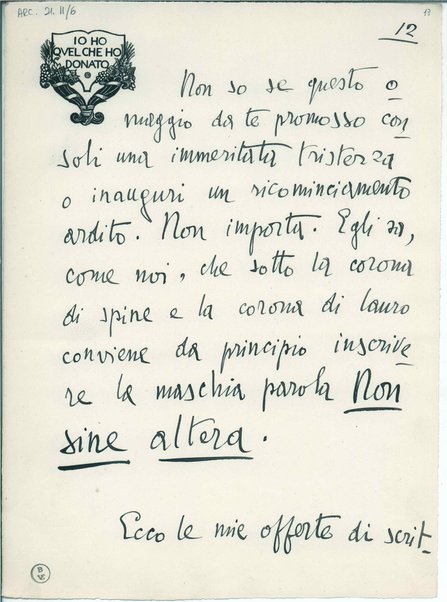 ARC. 21. II/6
13
12
IO HO
QVEL CHE HO
DONATO
Non so se questo o
maggio da te promosso con
soli una immeritata tristezza
o inauguri un ricominciamento
ardito. Non importa. Egli sa,
come noi, che sotto la corona
di spine e la corona di lauro
conviene da principio inscrive
re la maschia parola Non
sine altera.
Ecco le mie offerte di scrit-
B
VE